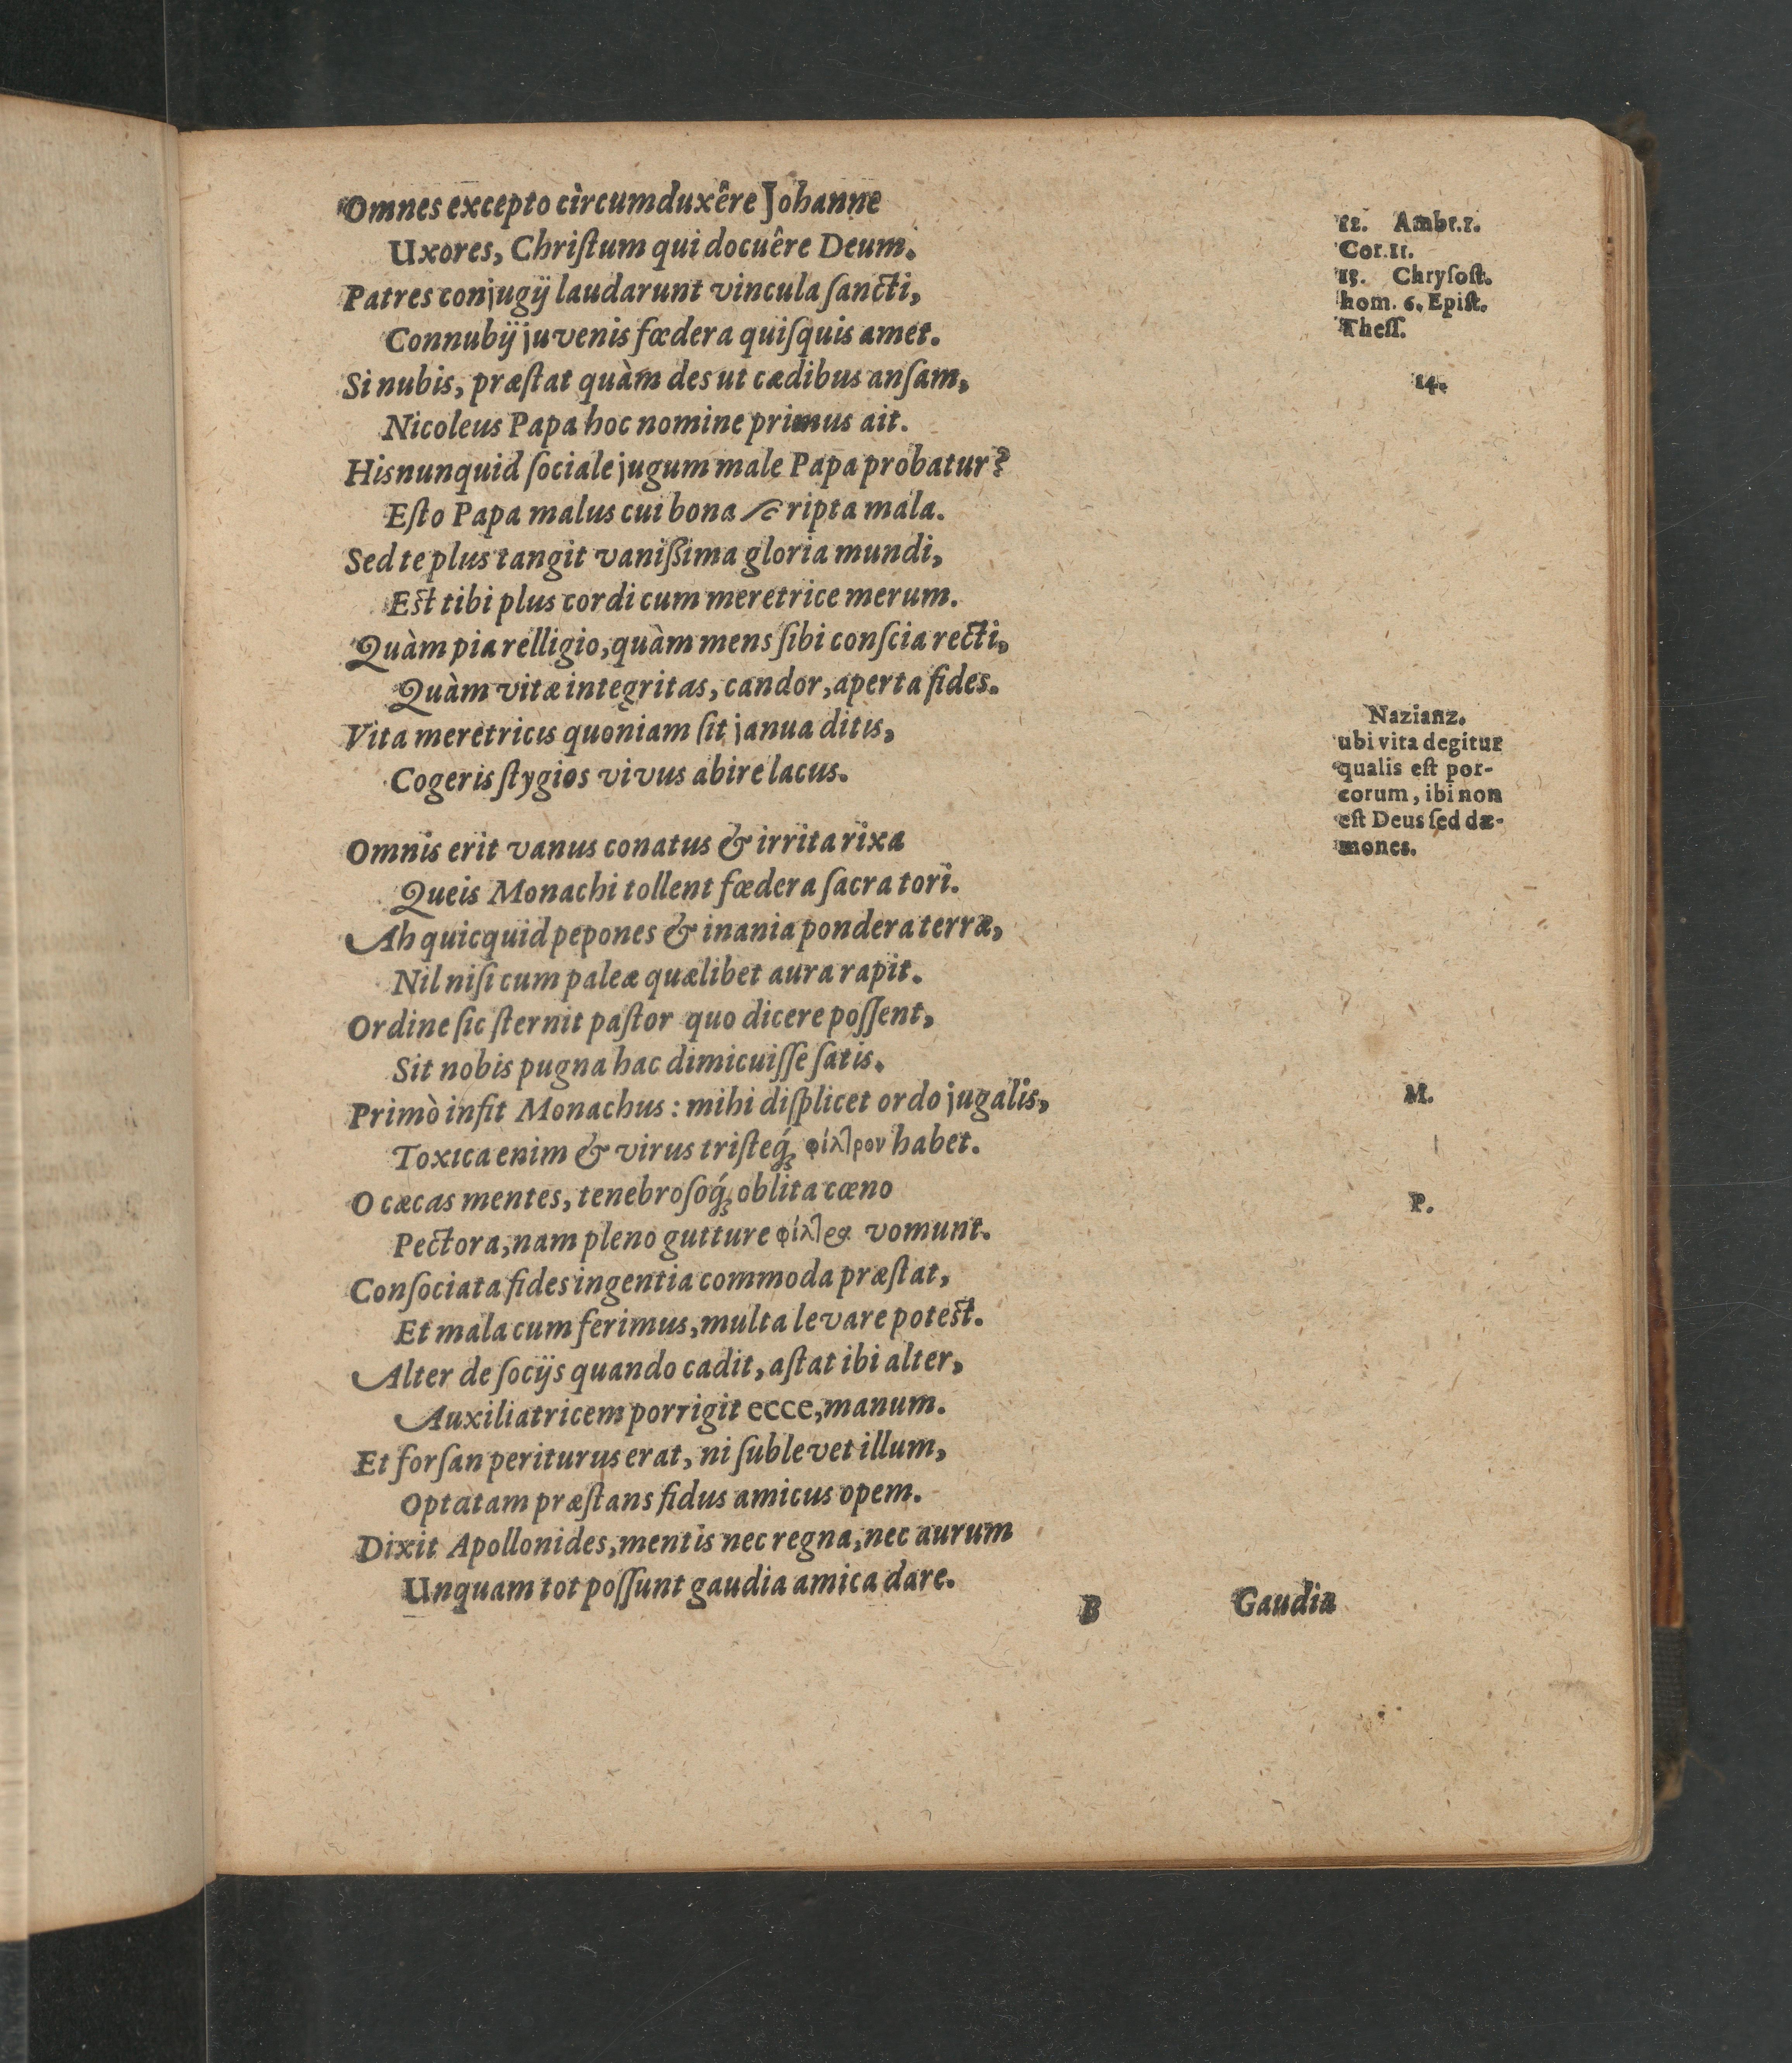 Omnes excepto circumduxêre Johanne
Uxores, Chriſtum qui docuêre Deum.
Patres conjugij laudarunt vincula ſancti,
Connubij juvenis fœdera quiſquis amet.
Si nubis, præſtat quàm des ut cædibus anſam,
Nicoleus Papa hoc nomine primus ait.
His nunquid ſociale jugum male Papa probatur?
Eſto Papa malus cui bona ſcripta mala.
Sed te plus tangit vanißima gloria mundi,
Eſt tibi plus cordi cum meretrice merum.
Quàm pia relligio, quàm mens ſibi conſcia recti,
Quàm vitæ integritas, candor, aperta fides.
Vita meretricis quoniam ſit janua ditis,
Cogeris ſtygios vivus abire lacus.
Omnis erit vanus conatus & irrita rixa
Queis Monachi tollent fœdera ſacra tori.
Ah quicquid pepones & inania pondera terræ,
Nil niſi cum paleæ quælibet aura rapit.
Ordine ſic ſternit paſtor quo dicere poſſent,
Sit nobis pugna hac dimicuiſſe ſatis.
Primò infit Monachus: mihi diſplicet ordo jugalis,
Toxica enim & virus triſteq́; φίλτρον habet.
O cæcas mentes, tenebroſoq́; oblita cœno
Pectora, nam pleno gutture φίλτρα vomunt.
Conſociata fides ingentia commoda præſtat,
Et mala cum ferimus, multa levare poteſt.
Alter de ſocijs quando cadit, aſtat ibi alter,
Auxiliatricem porrigit ecce, manum.
Et forſan periturus erat, ni ſublevet illum,
Optatam præſtans fidus amicus opem.
Dixit Apollonides, mentis nec regna, nec aurum
Unquam tot poſſunt gaudia amica dare.
B Gaudia
12. Ambr.1.
Cor.11.
13. Chryſoſt.
hom. 6. Epiſt.
Theſſ.
14.
Nazianz.
ubi vita degitur
qualis eſt por-
corum, ibi non
eſt Deus ſed dæ-
mones.
M.
P.